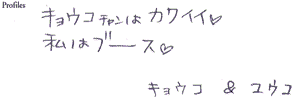 Profiles
キョウコチャンはカワイイ♡
私はブース♡
キョウコ & ユウコ